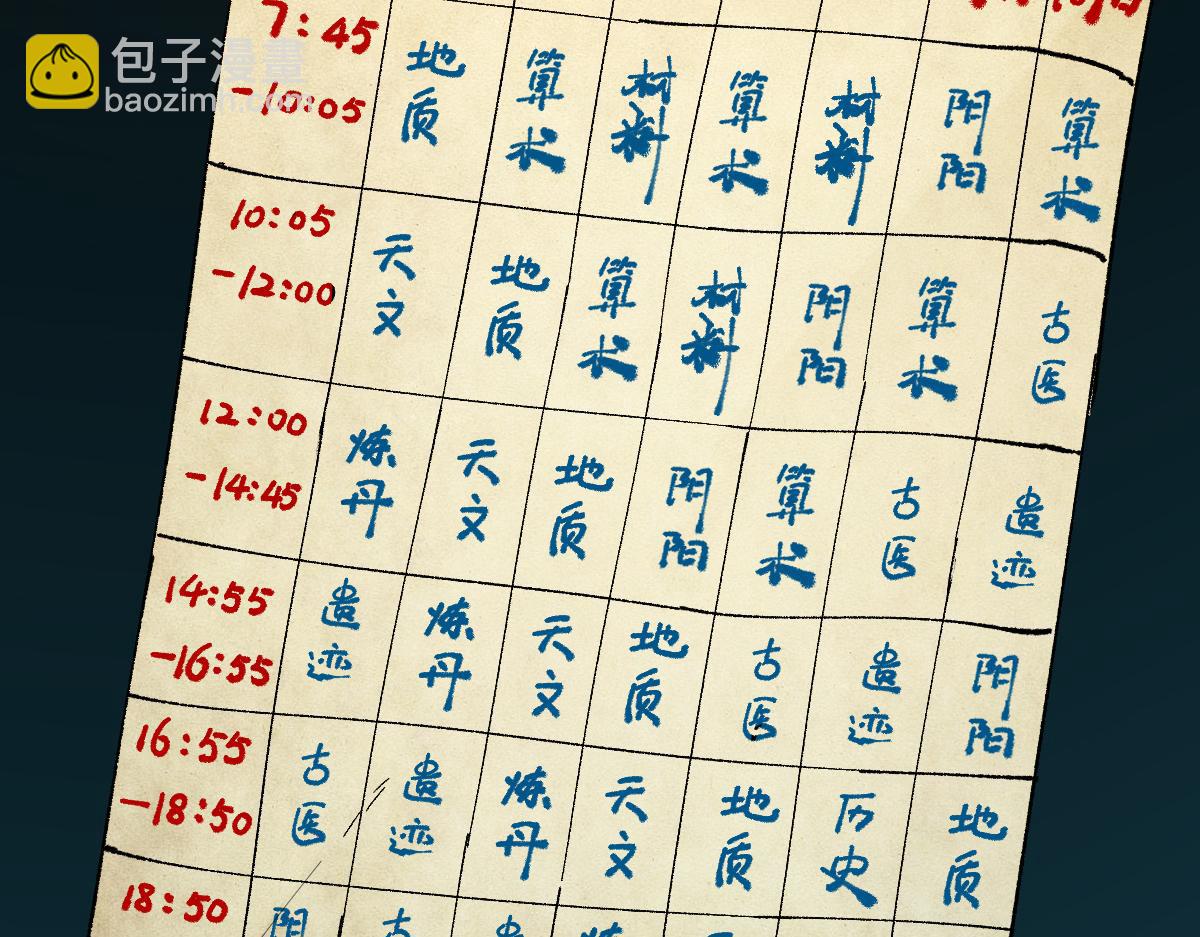 包子漫畫
baozimh.com
7:45
-10:05
地质
算术
材料
算术
材料
阴阳
算术
10:05
-12:00
天文
地质
算术
材料
阴阳
算术
古医
12:00
-14:45
炼丹
天文
地质
阴阳
算术
古医
遗迹
14:55
-16:55
遗迹
炼丹
天文
地质
古医
遗迹
阴阳
16:55
-18:50
古医
遗迹
炼丹
天文
地质
历史
地质
18:50
阴
古